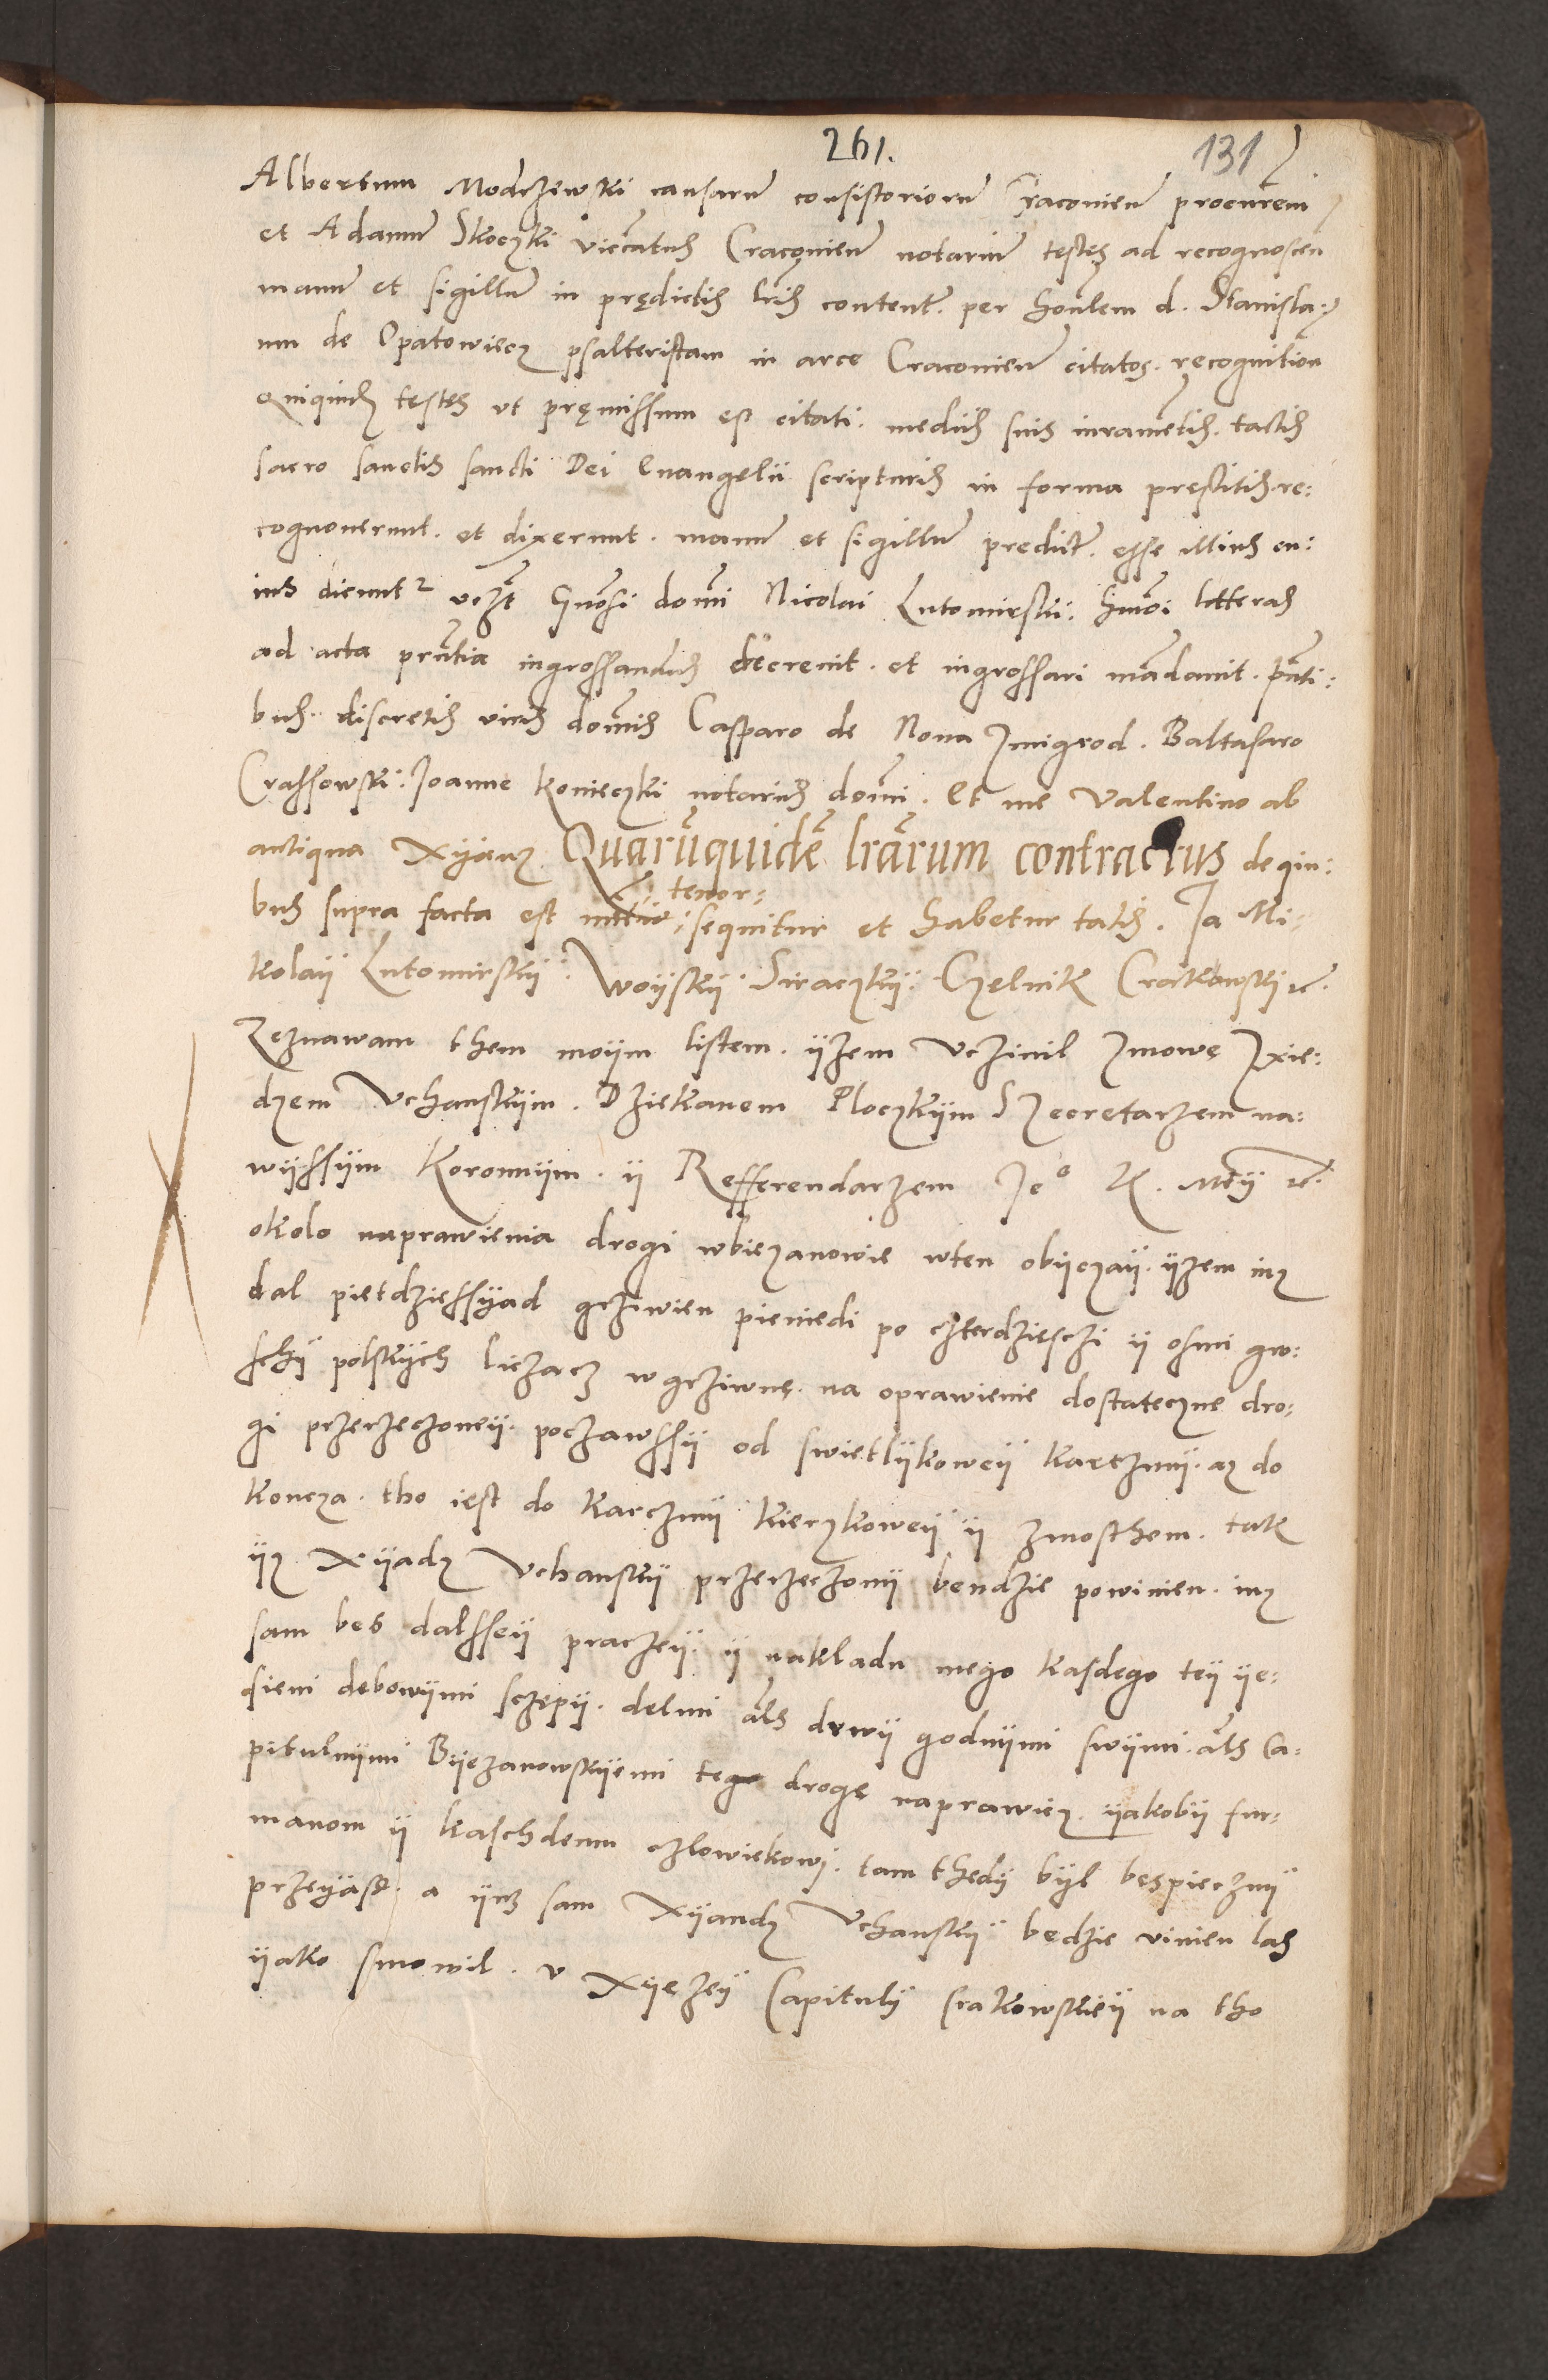 261.
131
Albertum Modrzewski causaru consistorioru Craconien procurem
et Adamu Skoczki vicecatus Craconien notariu testes ad recognoscen
manu et sigillu in prędictis lris content. per honlem d. Stanisla:
um de Opatowiecz psalteristam in arce Craconien citatos. recognition
Quiquid testes ut pręmissum est citati. mediis suis iurametis. tactis
sacro sanctis sancti Dei Euangelii scripturis in forma prestitis. re:
cognouerunt. et dixerunt. manu et sigillu predict. esse illius cu:
ius dicunt vczt Gnosi domi Nicolai Lutomirski. hmoi litteras
ad acta prntia ingrossandas decreuit. et ingrossari madauit. pnti:
bus. discretis viris domis Casparo de Noua Zmigrod. Baltasaro
Crassowski. Joanne Konieczki notariis domi. Et me Valentino ab
antiqua Xyanz Quaruquide lrarum contractus de qui:
bus supra facta est mttio: tenor: sequitur et habetur talis. Ja Mi:
kolaÿ Lutomirskÿ. Woÿskÿ Siraczkÿ. Czelnik Crakowskÿ rc.
Zeznawam them moÿm listem. ÿzem Vczinil Zmowę Zxie:
dzem Vchanskÿm. Dziekanem Ploczkÿm SZecretarzem na:
wÿssÿm Koronnÿm. ÿ Refferendarzem Je° K. Mczÿ rc.
okolo naprawienia drogi wbiezanowie wten obÿczaÿ. ÿzem iuz
dal pietdziessÿad grziwien pieniedi po czterdziesczi ÿ osmi gro:
schÿ polskÿch liczacz wgrziwnę. na oprawienie dostateczne dro:
gi przerzeczoneÿ. poczawssÿ od swietlÿkoweÿ karczmÿ. az do
koncza. tho iest do karczmÿ kierzkoweÿ ÿ zmosthem. tak
ÿz Xÿadz Vchanskÿ przerzeczonÿ bendzie powinien. iuz
sam bes dalsseÿ praczeÿ. ÿ nakladu mego kasdego teÿ ÿe:
sieni debowÿmi sczepÿ. delmi als drwÿ godnÿmi swÿmi. als Ca:
pitulnÿmi Bÿezanowskÿemi tego drogę naprawicz. ÿakobÿ fur:
manom ÿ kaschdemu czlowiekowi. tam thedÿ bÿl bespiecznÿ
przeÿasd. a ÿuz sam Xÿandz Vchanskÿ bedzie vinien las
ÿako smowil. v Xÿęzeÿ Capitulÿ Crakowskieÿ na tho